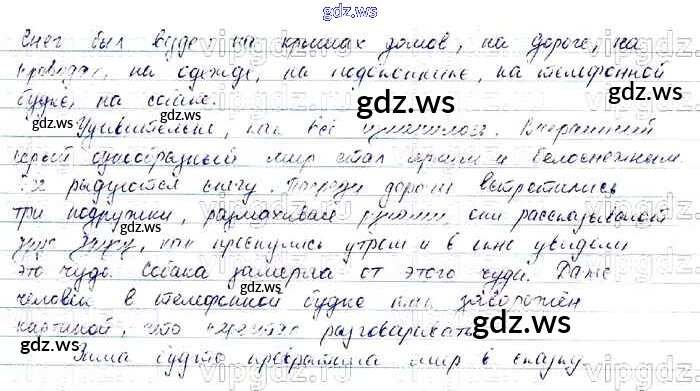 gdz.ws
Снег был везде: на крышах домов, на дороге, на
проводах, на одежде, на подоконнике, на телефонной
будке, на собаке.
Удивительно, как всё изменилось. Вчерашний
серый однообразный мир стал ярким и белоснежным.
Все радуются снегу. Посреди дороги встретились
три подружки, размахивая руками, они рассказывают
друг другу, как проснулись утром и в окне увидели
это чудо. Собака замерла от этого чуда. Даже
человек в телефонной будке как заворожён
картиной, что перестал разговаривать.
Зима будто превратила мир в сказку.
gdz.ws